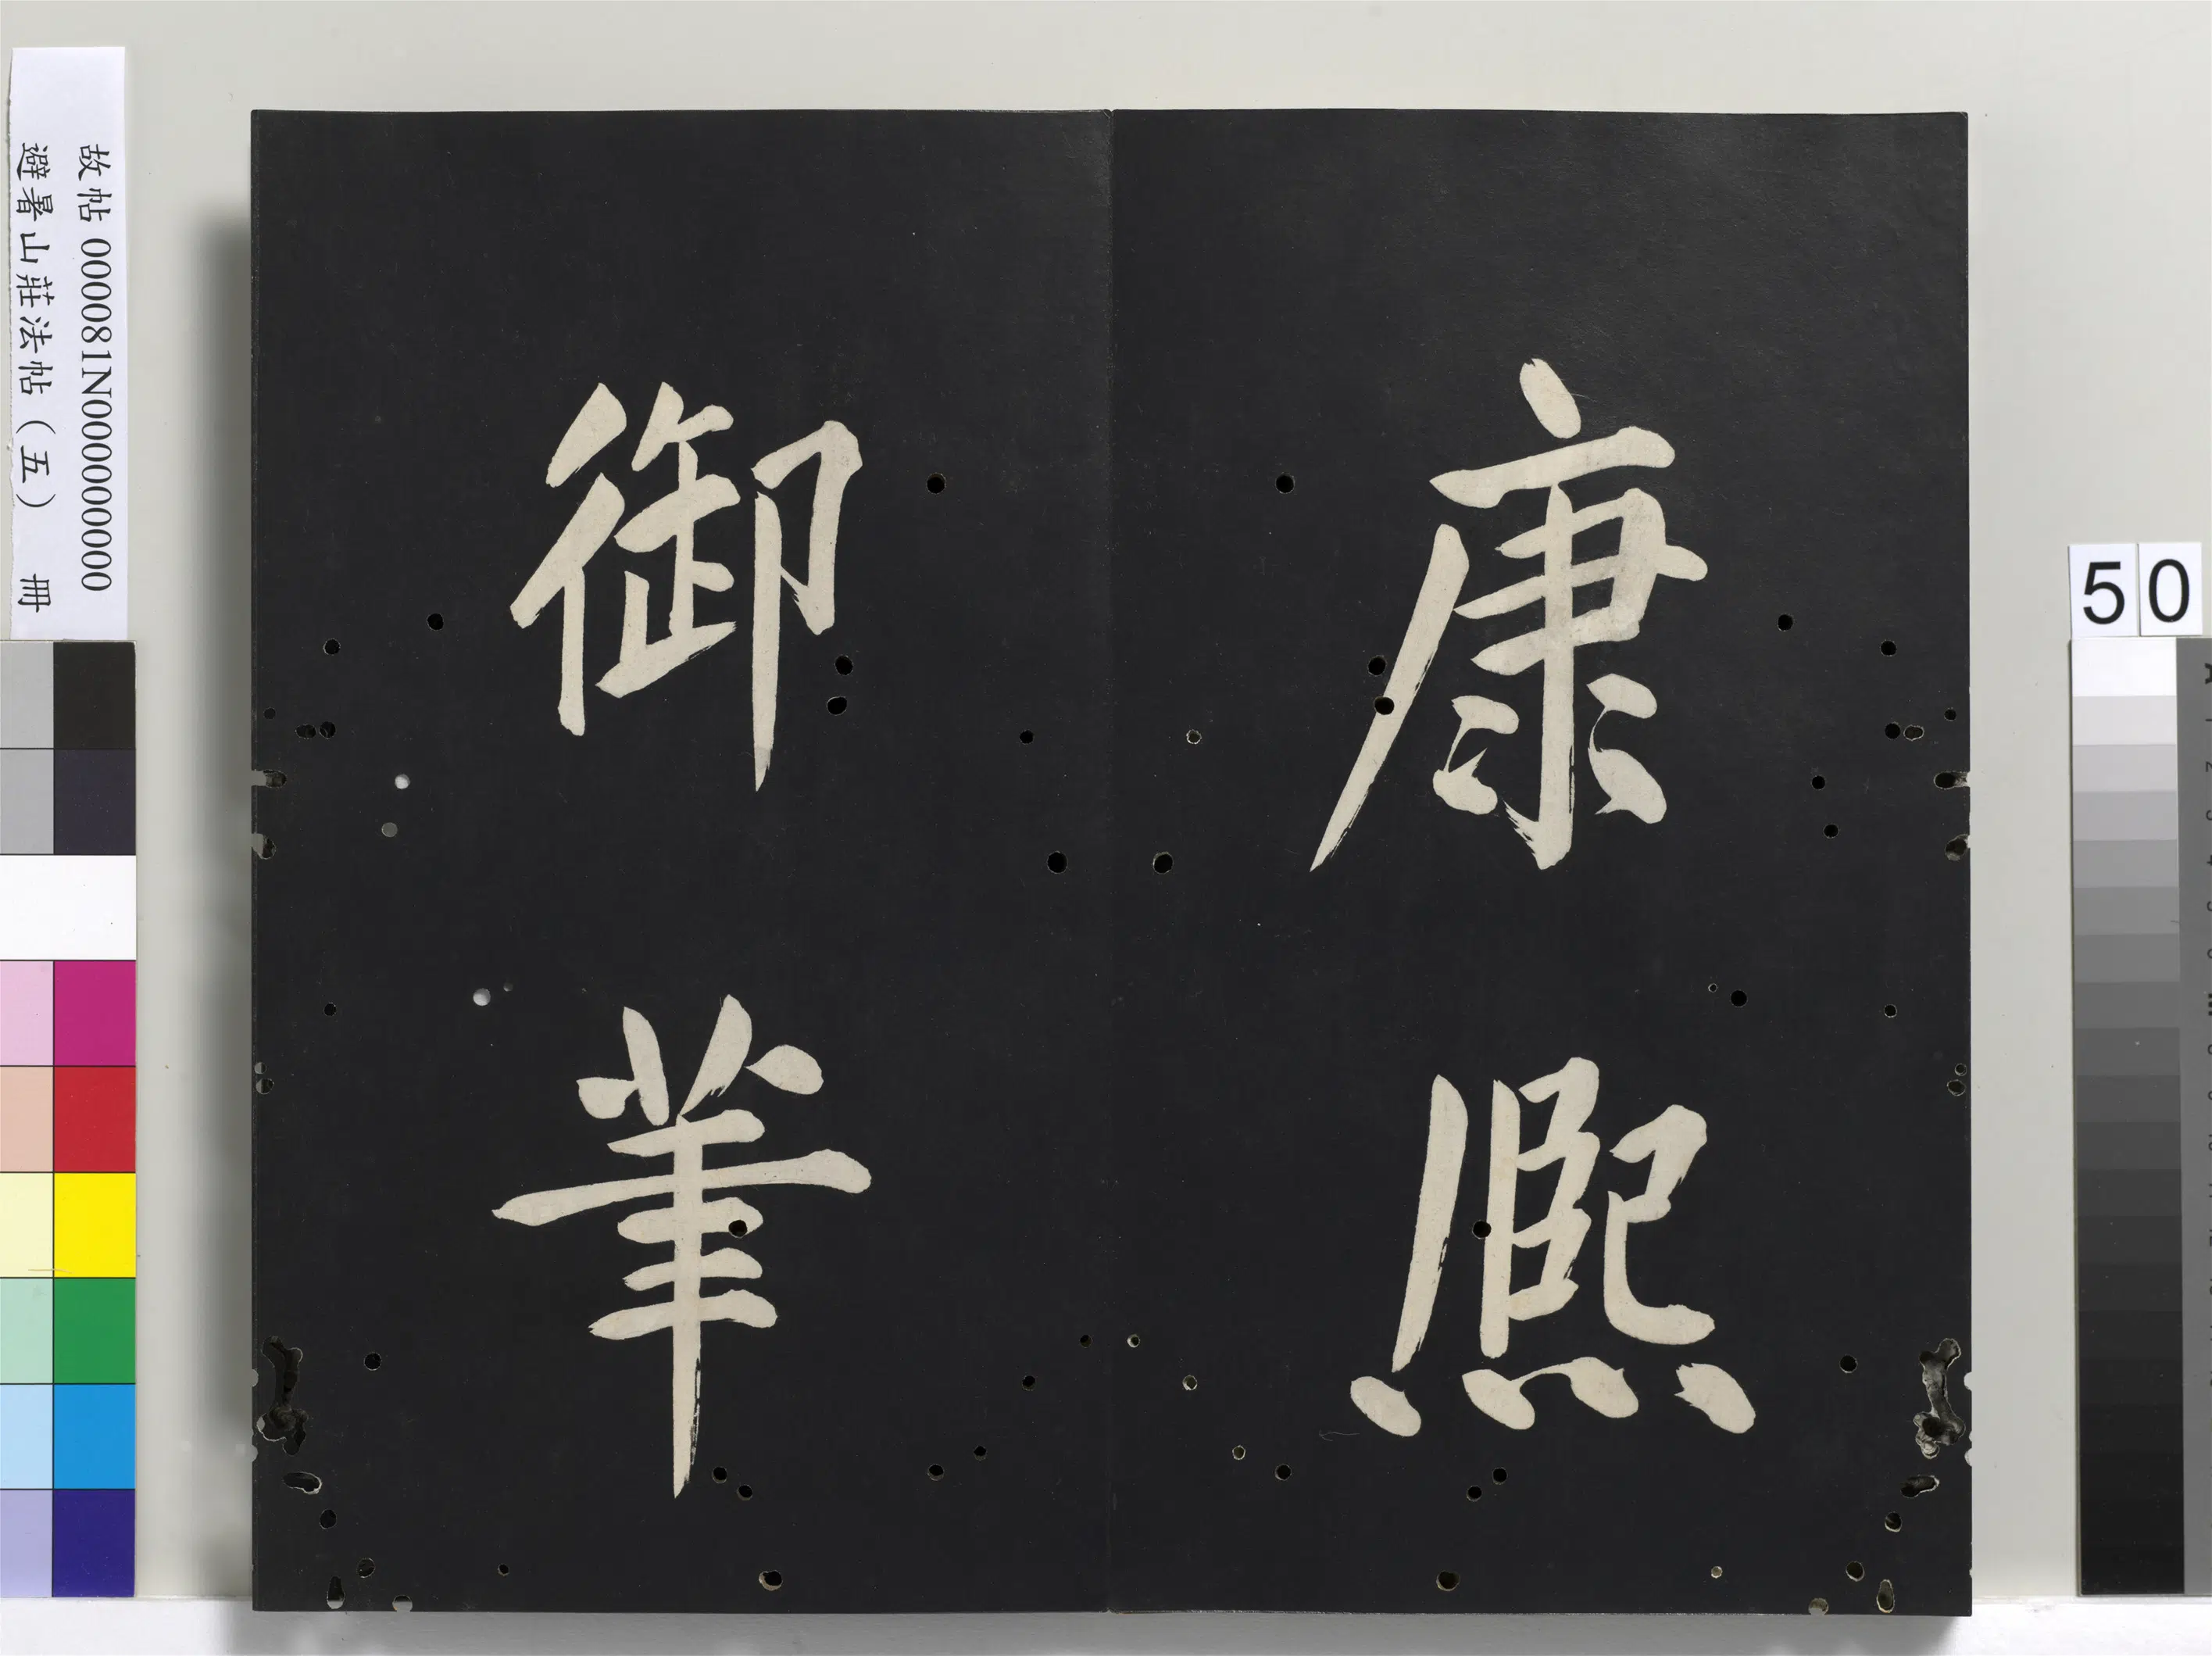 康熙
御筆
故帖 000081N000000000
避暑山莊法帖（五） 冊
50